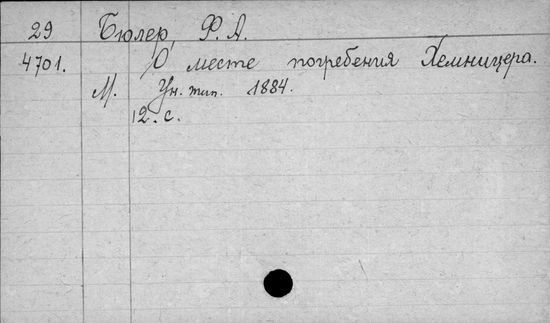 29 Бюлер, Ф. А.
4701. О месте погребения Хемницера.
М. Ун. тип. 1884.
12. с.